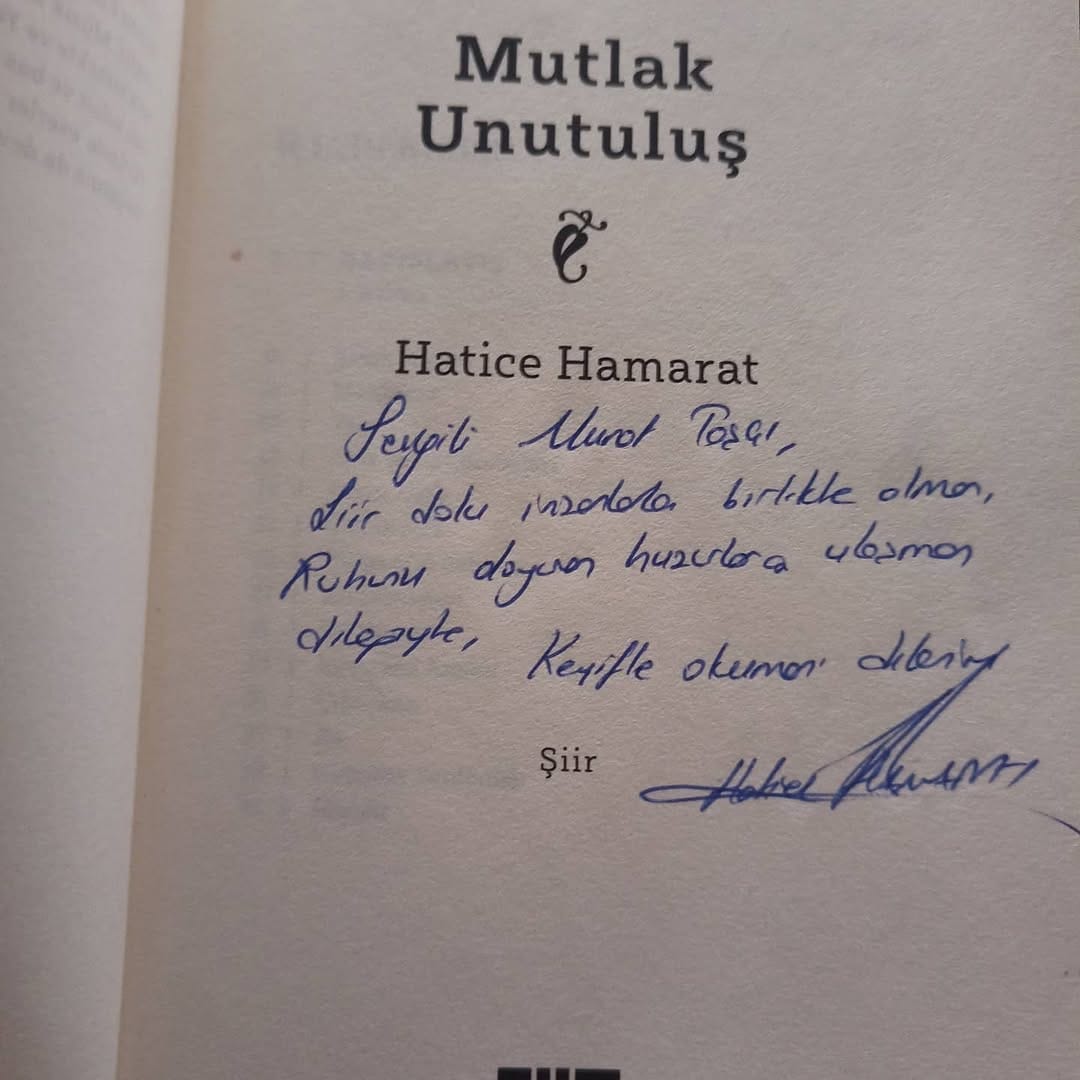 Mutlak
Unutuluş
Hatice Hamarat
Sevgili Murat Taşçı,
Şiir dolu insanlarla birlikte olman,
Ruhunu doyuran huzurlara ulaşman
dileğiyle,
Keyifle okumanı dilerim
Şiir
Hatice Hamarat